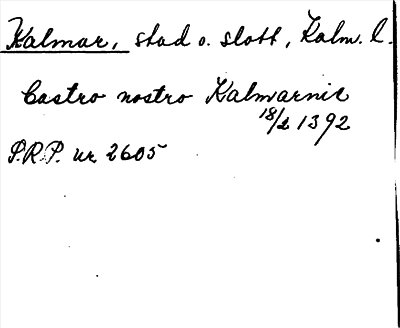 Kalmar, stad o. slott, Kalm. l.
Castro nostro Kalmarnie
18/2 1392
P.R.P. nr 2605